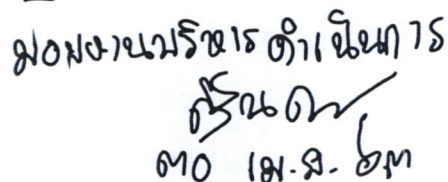 มอบงานบริหารดำเนินการ
๓๐ เม.ย. ๖๓